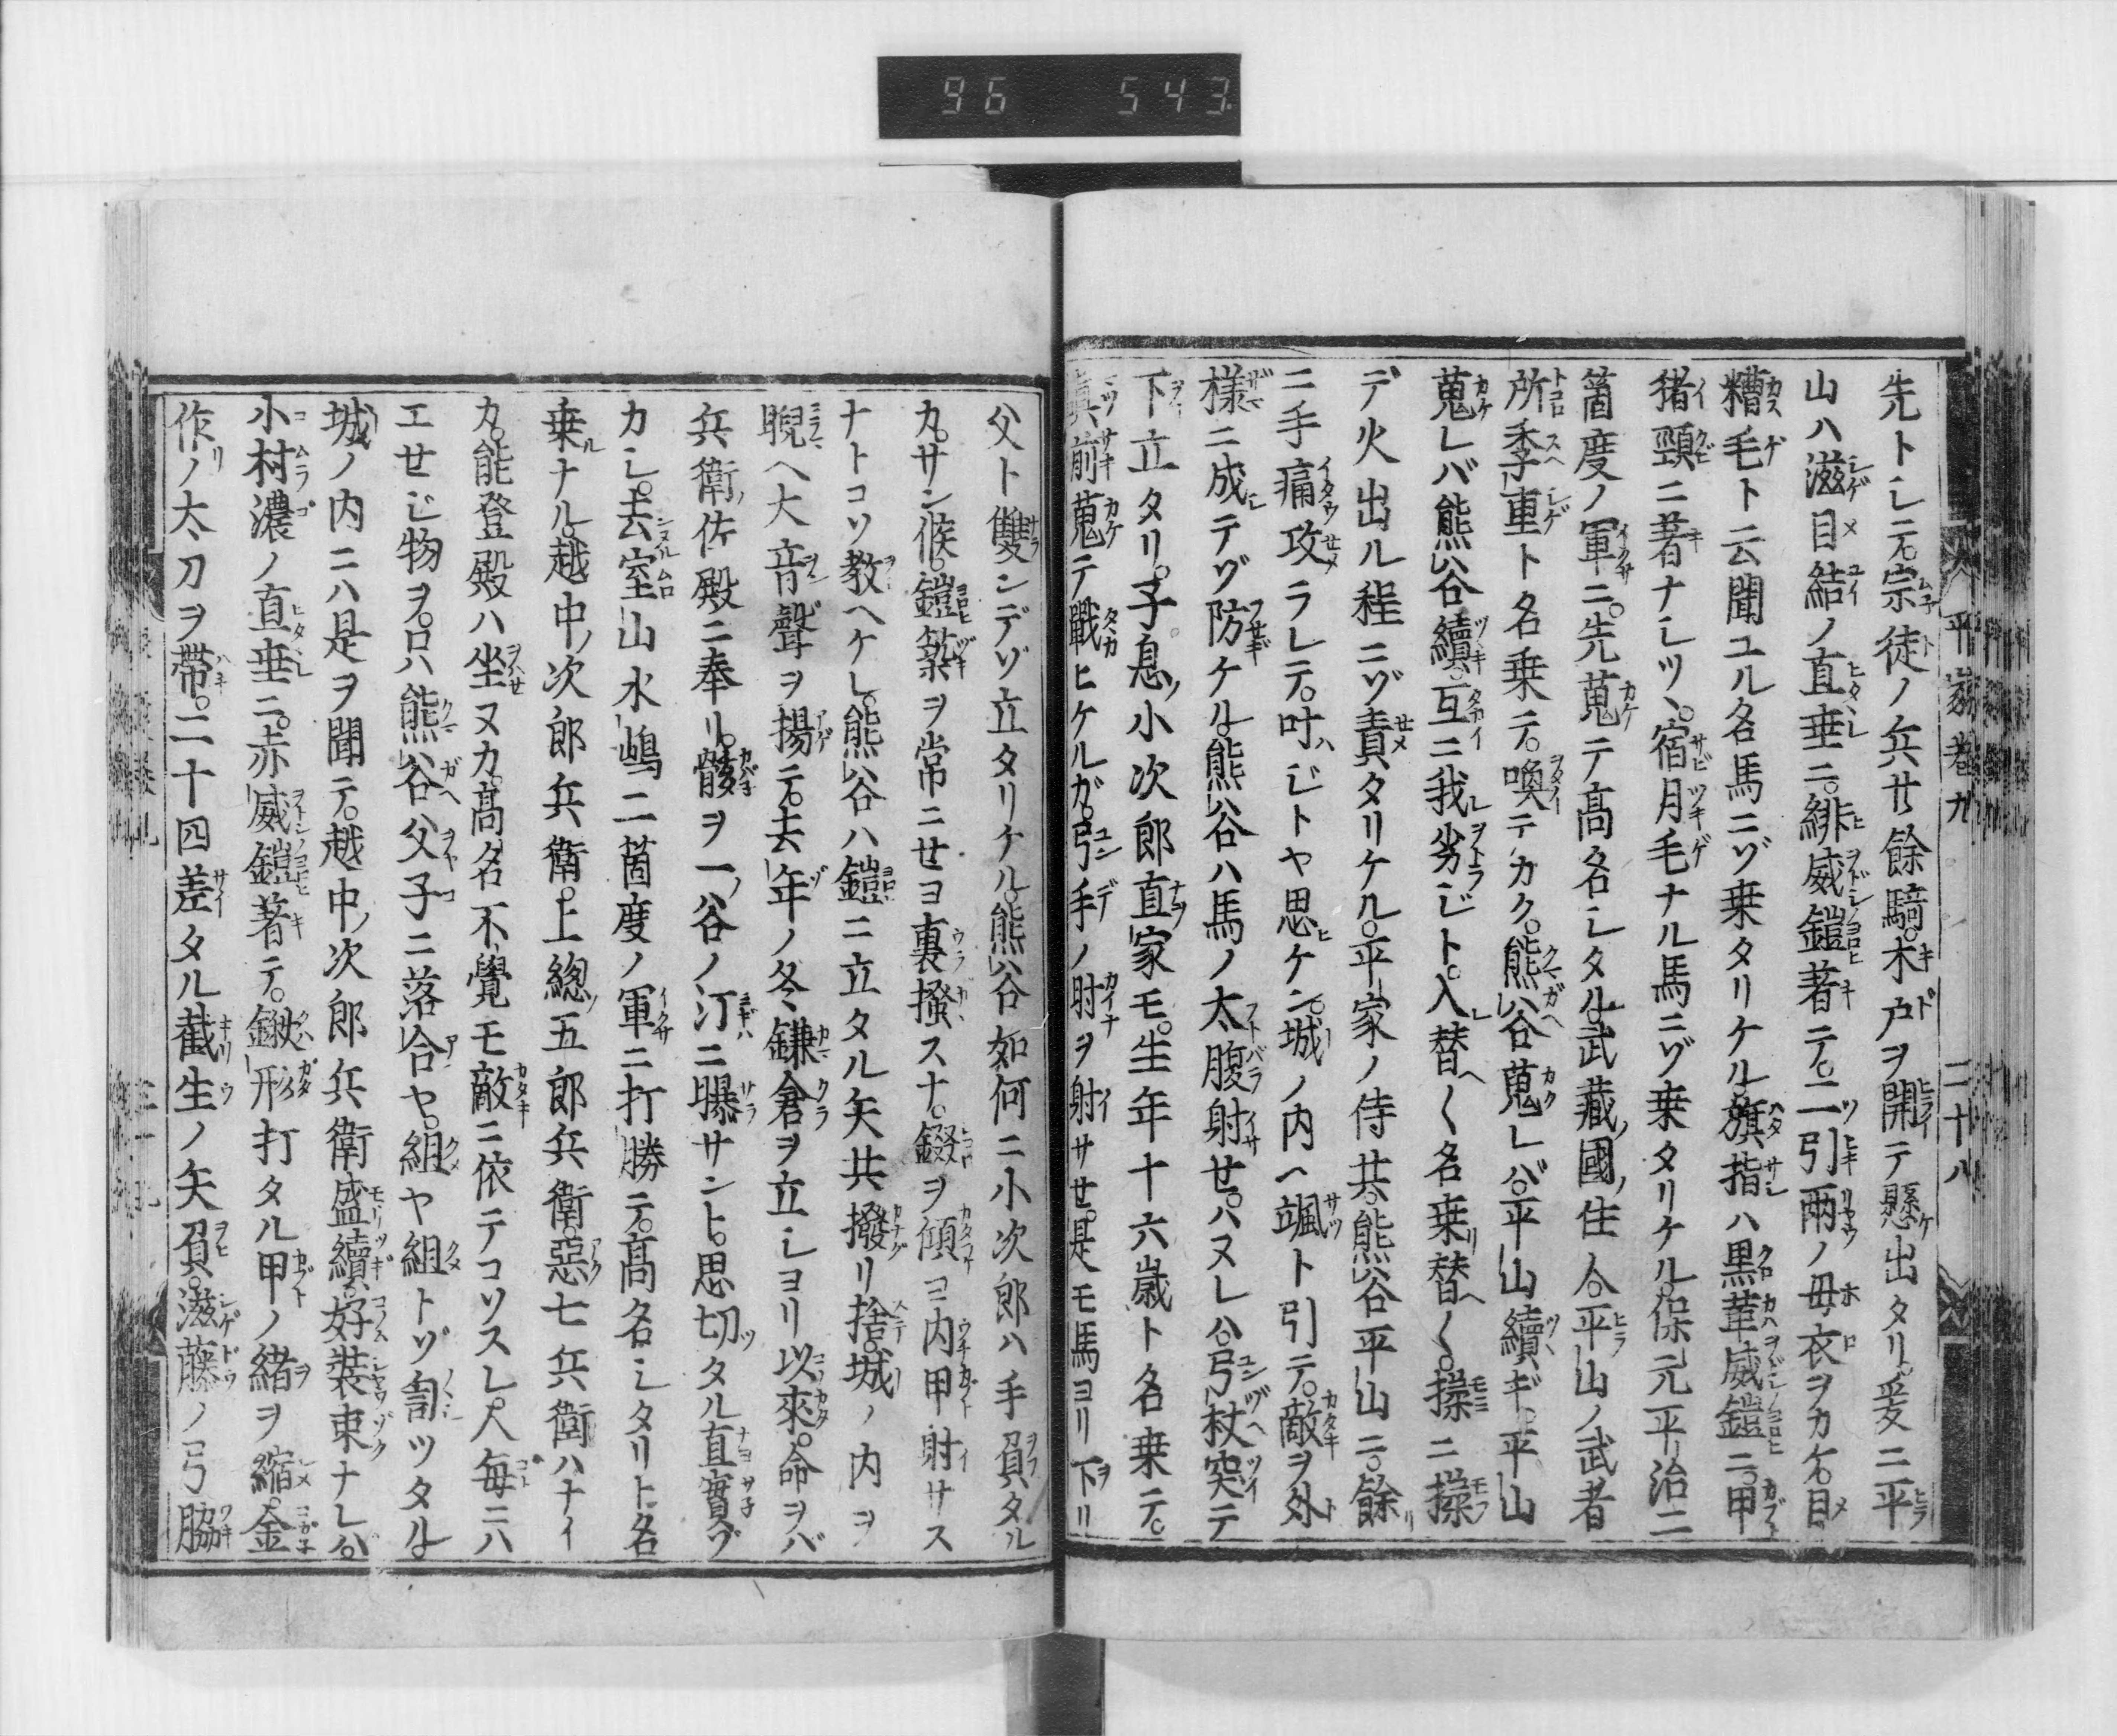 96 543
平家巻九 二十八
先トシテ。宗徒ノ兵廿餘騎。木戸ヲ開テ懸出タリ。爰ニ平
山ハ滋目結ノ直垂ニ。緋威鎧著テ。二引兩ノ母衣ヲカケ。目
糟毛ト云聞ユル名馬ニゾ乗タリケル。旗指ハ黒革威鎧ニ。甲
猪頸ニ著ナシツヽ。宿月毛ナル馬ニゾ乗タリケル。保元平治二
箇度ノ軍ニ。先蒐テ高名シタル。武藏國ノ住人。平山ノ武者
所季重ト名乗テ。喚テカク。熊谷蒐レバ。平山續ギ。平山
蒐レバ熊谷續。互ニ我劣ジト。入替ヘ〱名乗替ヘ〱。揉ニ揉
デ火出ル程ニゾ責タリケル。平家ノ侍共。熊谷平山ニ。餘リ
ニ手痛攻ラレテ。叶ハジトヤ思ヒケン。城ノ内ヘ颯ト引テ。敵ヲ外
様ニ成テゾ防ケル。熊谷ハ馬ノ太腹射サせ。ハヌレハ。弓杖突テ
下立タリ。子息ノ小次郎直家モ。生年十六歳ト名乗テ。
真前蒐テ戰ヒケルガ。弓手ノ肘ヲ射サせ。是モ馬ヨリ下リ
父ト雙ンデゾ立タリケル。熊谷如何ニ小次郎ハ手負タル
カ。サン候。鎧築ヲ常ニせヨ裏掻スナ。錣ヲ傾ヨ内甲射サス
ナトコソ教ヘケレ。熊谷ハ鎧ニ立タル矢共撥リ捨。城ノ内ヲ
睨ヘ大音聲ヲ揚テ。去年ノ冬鎌倉ヲ立シヨリ以來。命ヲバ
兵衛ノ佐殿ニ奉リ。骸ヲ一ノ谷ノ汀ニ曝サント。思切ツタル直實ゾ
カシ。去室山水嶋二箇度ノ軍ニ打勝テ。高名シタリト名
乗ルナル。越中ノ次郎兵衛。上總ノ五郎兵衛。惡七兵衛ハナイ
カ。能登殿ハ坐ヌカ。高名不覺モ敵ニ依テコソスレ。人毎ニハ
エせジ物ヲ。只熊谷父子ニ落合ヤ。組ヤ組トゾ訇ツタル。
城ノ内ニハ是ヲ聞テ。越中ノ次郎兵衛盛續。好裝束ナレバ。
小村濃ノ直垂ニ。赤威鎧著テ。鍬形打タル甲ノ緒ヲ縮。金
作リノ太刀ヲ帶。二十四差タル截生ノ矢負。滋藤ノ弓脇